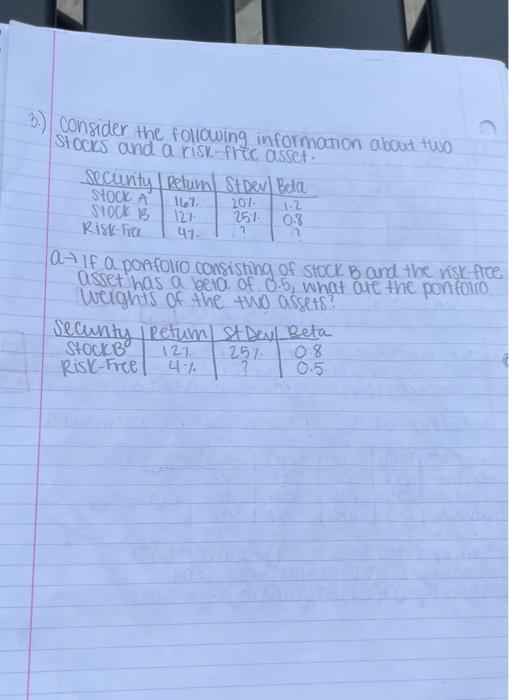 3.) Consider the following information about two
stocks and a risk-free asset.
Security Return St Dev Beta
Stock A 16% 20% 1.2
Stock B 12% 25% 0.8
Risk-Free 4% ? ?
a→ If a portfolio consisting of Stock B and the risk-free
asset has a beta of 0.5, what are the portfolio
weights of the two assets?
Security Return St Dev Beta
Stock B 12% 25% 0.8
Risk-Free 4% ? 0.5